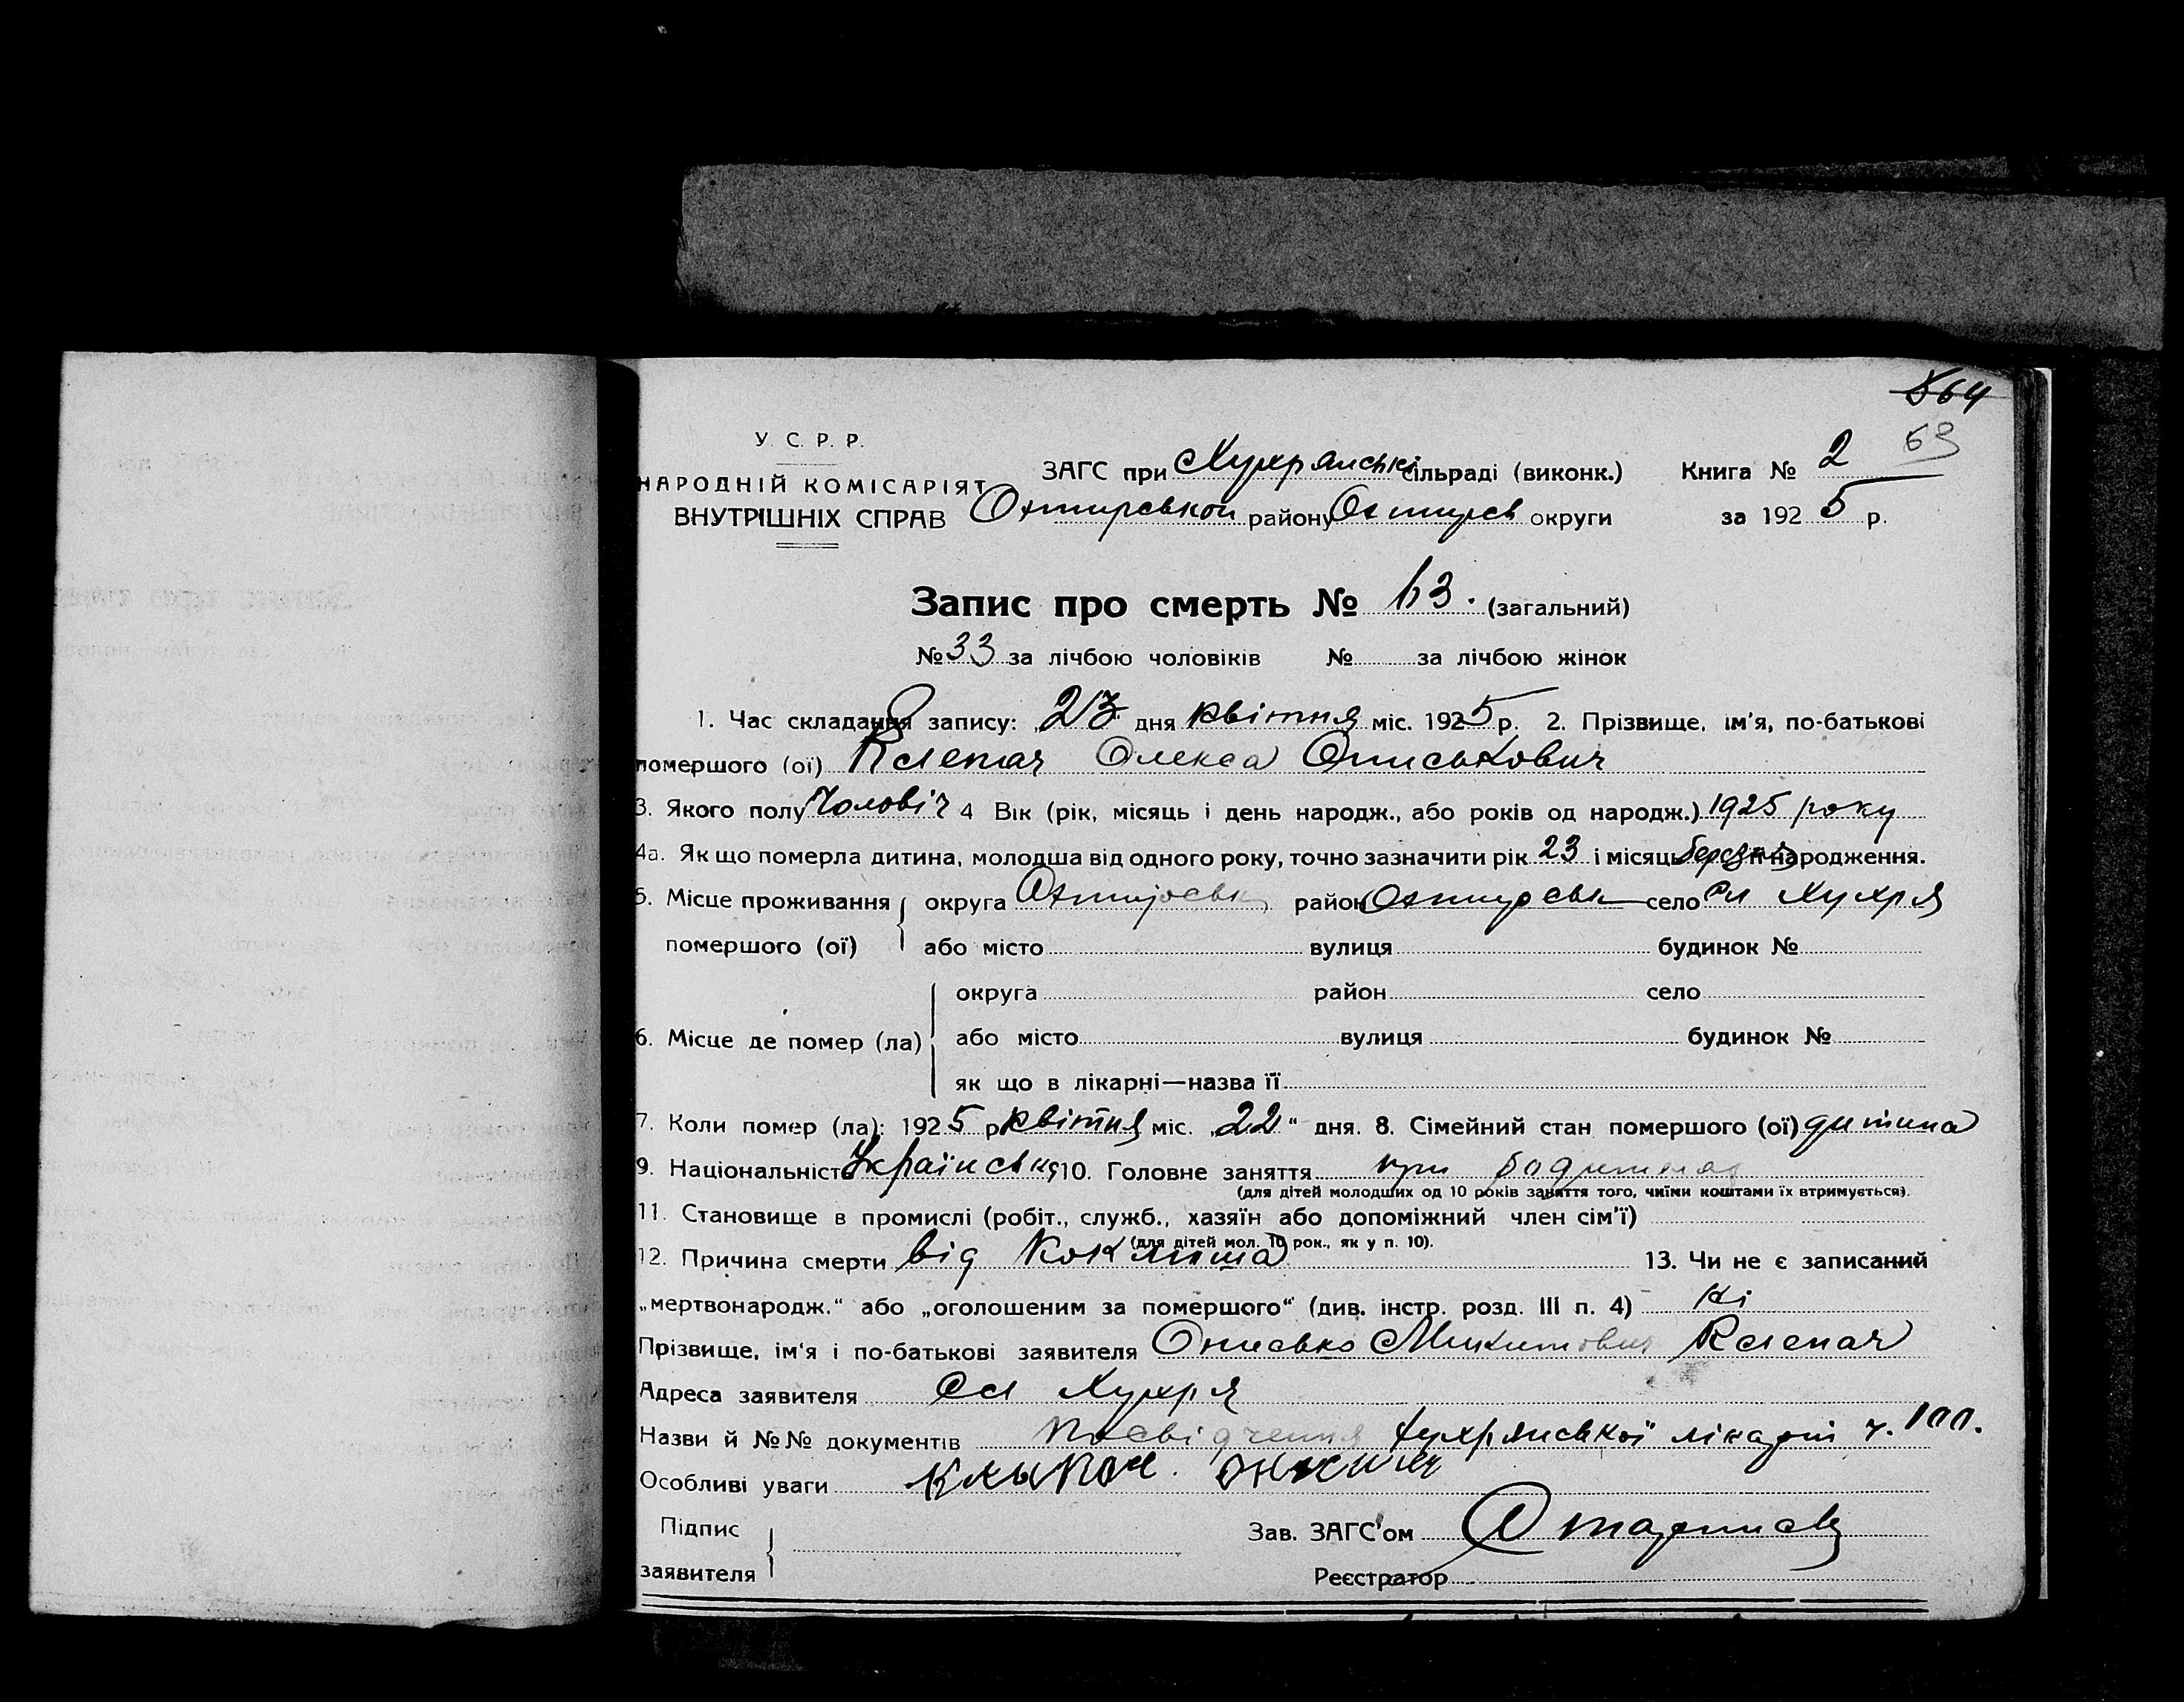 564
69
У. С. Р. Р.
НАРОДНІЙ КОМІСАРІЯТ
ВНУТРІШНІХ СПРАВ
ЗАГС при Хухрянські сільраді (виконк.) Книга № 2
Охтирської району Охтирсь округи за 1925 р.
Запис про смерть № 63. (загальний)
№ 33 за лічбою чоловіків № за лічбою жінок
1. Час складання запису: „23 дня квітня міс. 1925 р. 2. Прізвище, ім'я, по-батькові
помершого (ої) Клепач Олекса Описькович
3. Якого полу Чоловіч 4 Вік (рік, місяць і день народж., або років од народж.) 1925 року
4а. Як що померла дитина, молодша від одного року, точно зазначити рік 23 і місяць березня її народження.
5. Місце проживання округа Охтирськ район Охтирськ село Сл Хухря
помершого (ої) або місто вулиця будинок №
округа район село
6. Місце де помер (ла) або місто вулиця будинок №
як що в лікарні—назва її
7. Коли помер (ла): 1925 р квітня міс. „22“ дня. 8. Сімейний стан помершого (ої) дитина
9. Національність Українська 10. Головне заняття при
(для дітей молодших од 10 років заняття того, чиїми коштами їх втримується).
11. Становище в промислі (робіт., служб., хазяїн або допоміжний член сім'ї)
(для дітей мол. 10 рок., як у п. 10).
12. Причина смерти від Коклюша 13. Чи не є записаний
„мертвонародж.“ або „оголошеним за помершого“ (див. інстр. розд. III п. 4) Ні
Прізвище, ім'я і по-батькові заявителя Описько Микитович Клепач
Адреса заявителя Сл Хухря
Назви й №№ документів посвідчення Хухрянської лікарні ч. 100.
Особливі уваги
Підпис
заявителя
Зав. ЗАГС'ом
Реєстратор